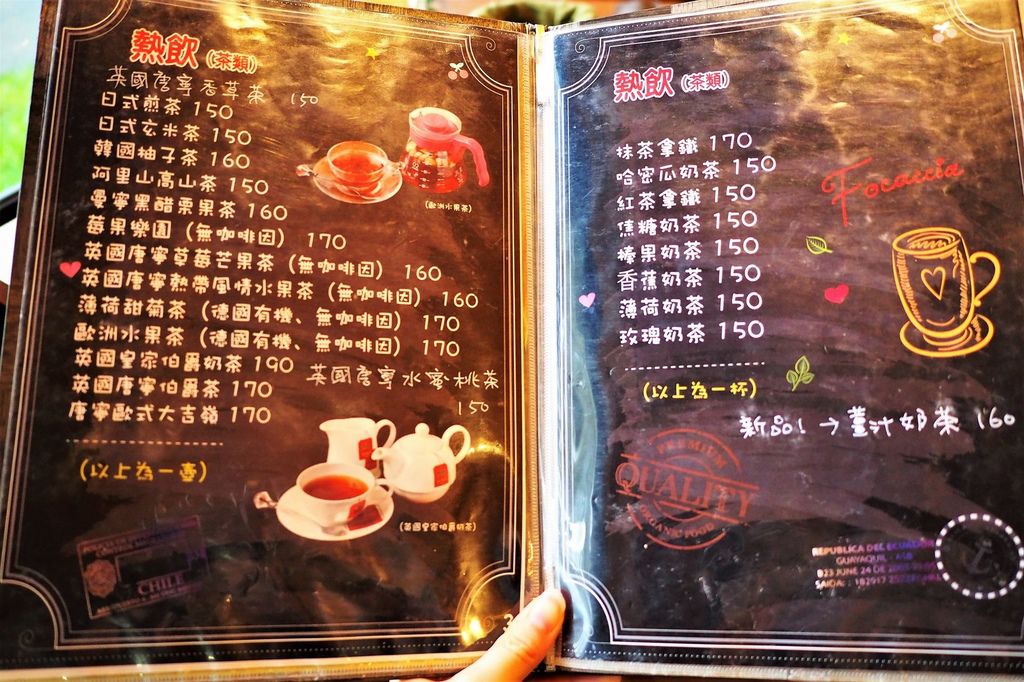 熱飲 (茶類)
英國唐寧香草茶 150
日式煎茶 150
日式玄米茶 150
韓國柚子茶 160
阿里山高山茶 150
曼寧黑醋栗果茶 160
莓果樂園 (無咖啡因) 170
英國唐寧草莓芒果茶 (無咖啡因) 160
英國唐寧熱帶風情水果茶 (無咖啡因) 160
薄荷甜菊茶 (德國有機、無咖啡因) 170
歐洲水果茶 (德國有機、無咖啡因) 170
英國皇家伯爵奶茶 190
英國唐寧水蜜桃茶
150
英國唐寧伯爵茶 170
唐寧歐式大吉嶺 170
(以上為一壺)
(歐洲水果茶)
(英國皇家伯爵奶茶)
CHILE
3
熱飲 (茶類)
抹茶拿鐵 170
哈密瓜奶茶 150
紅茶拿鐵 150
焦糖奶茶 150
榛果奶茶 150
香蕉奶茶 150
薄荷奶茶 150
玫瑰奶茶 150
(以上為一杯)
Focaccia
新品! → 薑汁奶茶 160
PREMIUM
QUALITY
ORGANIC FOOD
REPUBLICA DEL ECUADOR
GUAYAQUIL - AGB
823 JUNE 24 DE
SAIDA: 182917